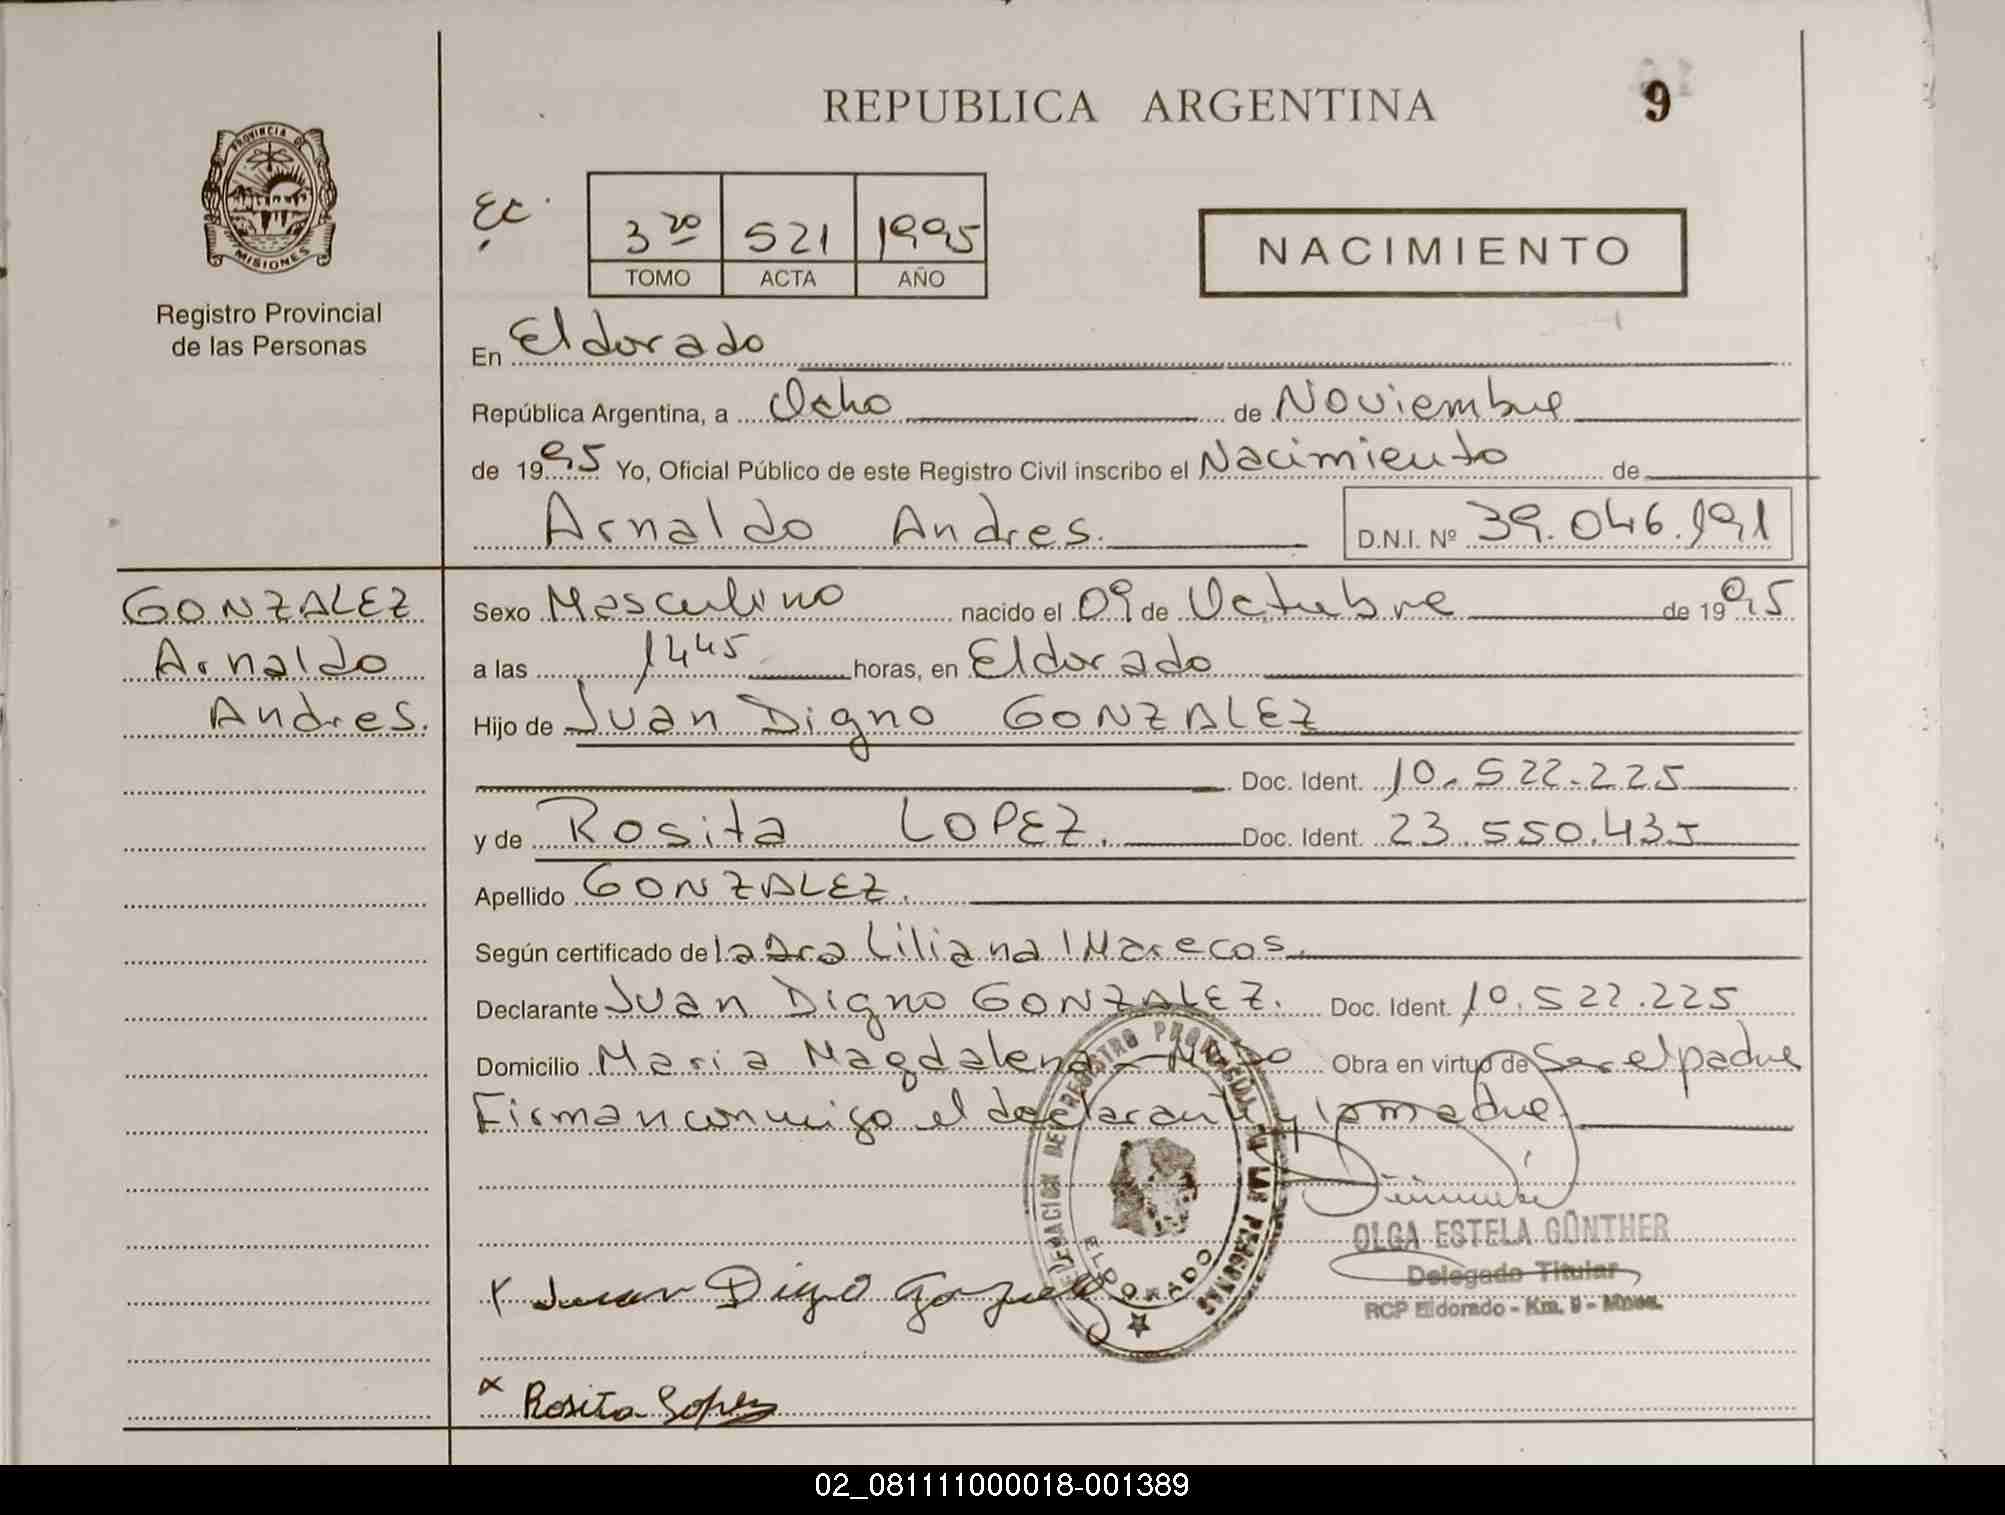 REPUBLICA ARGENTINA
9
PROVINCIA DE
MISIONES
Registro Provincial
de las Personas
3ro 521 1995
TOMO ACTA AÑO
NACIMIENTO
En Eldorado
República Argentina, a Ocho de Noviembre
de 1995 Yo, Oficial Público de este Registro Civil inscribo el Nacimiento de
Arnaldo Andres. D.N.I. Nº 39.046.191
GONZALEZ
Arnaldo
Andres.
Sexo Masculino nacido el 09 de Octubre de 1995
a las 1445 horas, en Eldorado
Hijo de Juan Digno GONZALEZ
Doc. Ident. 10.522.225
y de Rosita LOPEZ. Doc. Ident. 23.550.435
Apellido GONZALEZ.
Según certificado de la Dra Liliana Marecos.
Declarante Juan Digno GONZALEZ. Doc. Ident. 10.522.225
Domicilio Maria Magdalena - Obra en virtud de Ser el padre
Firman conmigo el declarante y la madre.
OLGA ESTELA GÜNTHER
Delegado Titular
RCP Eldorado - Km. 9 - Mnes.
DELEGACION DEL REGISTRO PROVINCIAL DE LAS PERSONAS
ELDORADO
x Juan Digno Gonzalez
x Rosita Lopez
02_081111000018-001389